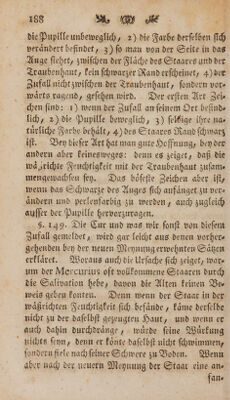 188
die Pupille unbeweglich, 2) die Farbe derselben sich
verändert befindet, 3) so man von der Seite in das
Auge siehet, zwischen der Fläche des Staares und der
Traubenhaut, kein schwarzer Rand erscheinet, 4) der
Zufall nicht zwischen der Traubenhaut, sondern vor-
wärts ragend, gesehen wird. Der ersten Art Zei-
chen sind: 1) wenn der Zufall an seinem Ort befind-
lich, 2) die Pupille beweglich, 3) selbige ihre na-
türliche Farbe behält, 4) des Staares Rand schwarz
ist. Bey dieser Art hat man gute Hoffnung, bey der
andern aber keinesweges: denn es zeiget, daß die
wäßrichte Feuchtigkeit mit der Traubenhaut zusam-
mengewachsen sey. Das böseste Zeichen aber ist,
wenn das Schwarze des Auges sich anfänget zu ver-
ändern und perlenfarbig zu werden, auch zugleich
ausser der Pupille hervorzuragen.
§. 149. Die Cur und was wir sonst von diesem
Zufall gemeldet, wird gar leicht aus denen vorher-
gehenden bey der neuen Meynung erwehnten Sätzen
erkläret. Woraus auch die Ursache sich zeiget, war-
um der Mercurius oft vollkommene Staaren durch
die Salivation hebe, davon die Alten keinen Be-
weis geben konten. Denn wenn der Staar in der
wäßrichten Feuchtigkeit sich befände, käme derselbe
nicht zu der daselbst gezeugten Haut, und wenn er
auch dahin durchdränge, würde seine Würkung
nichts seyn, denn er könte daselbst nicht schwimmen,
sondern fiele nach seiner Schwere zu Boden. Wenn
aber nach der neuern Meynung der Staar eine an-
fan-